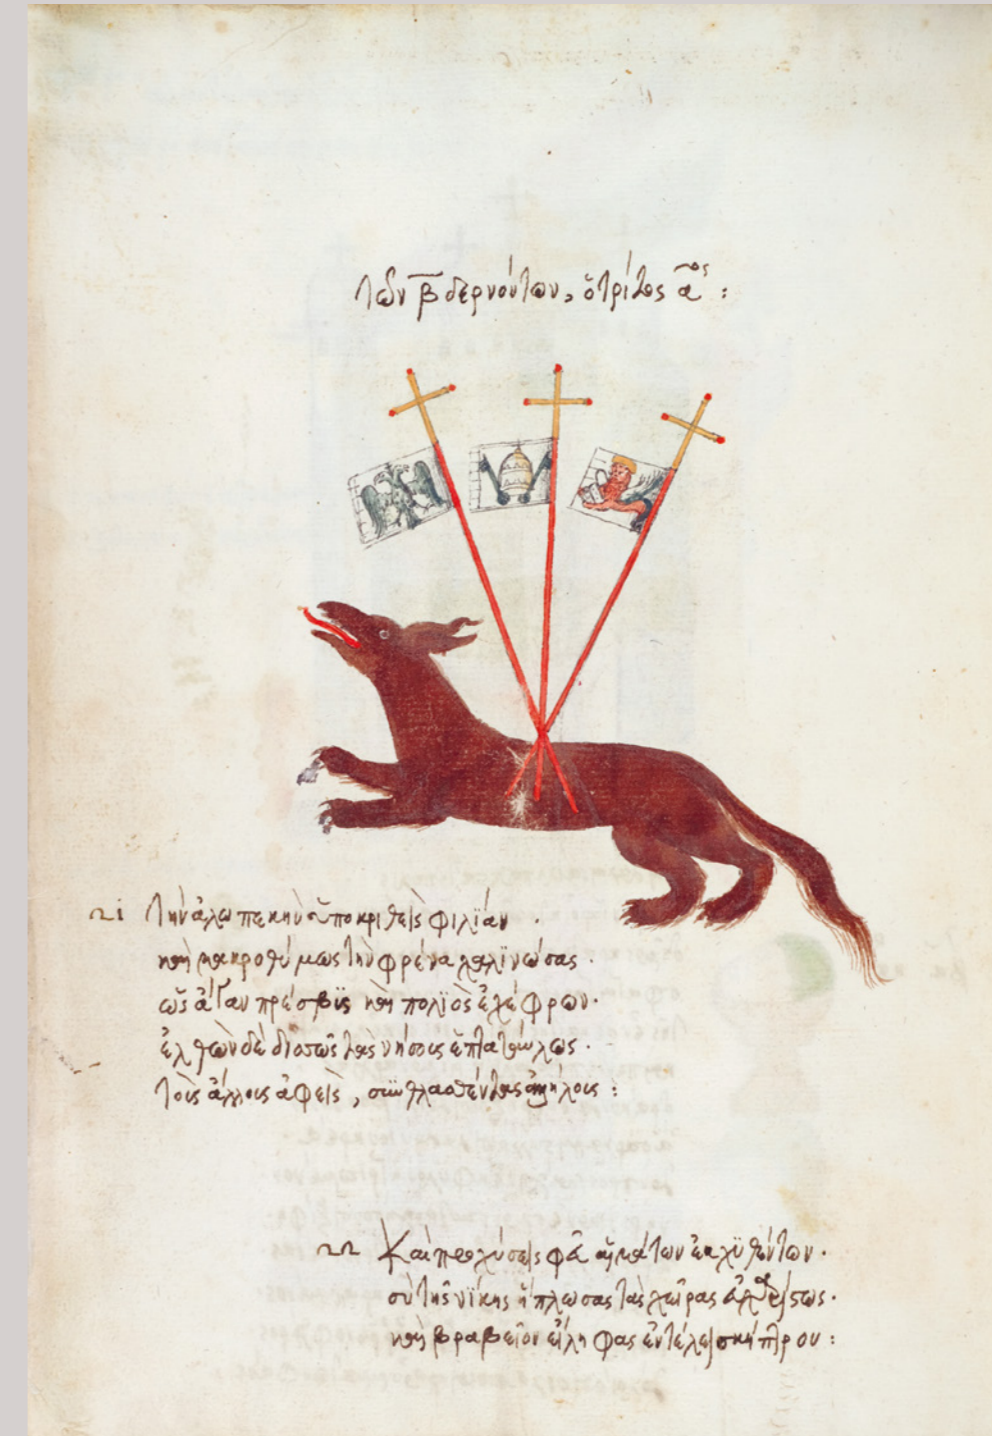 Τῶν β̅ δερνόντων, ὁ τρίτος α^ος :
21 Τὴν ἀλωπεκὴν ὑποκριθεὶς φιλίαν ·
καὶ μακροθύμως τὴν φρένα χαλϊνώσας ·
ὡς ἄγαν πρέσβϋς καὶ πολϊὸς ἐχέφρων ·
ἐλθὼν δὲ τὰς νήσους
τοὺς ἄλλους ἀφεὶς, συνθλασθέντας ἀλλήλοις :
22 Καὶ αἱμάτων ἐκχϋθέντων ·
σὺ τῆς νίκης ἥπλωσας τὰς χεῖρας
καὶ βραβεῖον εἴληφας ἐν τέλει σκήπτρου :